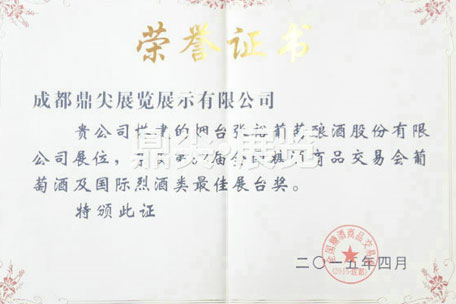 荣誉证书
成都鼎尖展览展示有限公司
贵公司搭建的烟台张裕葡萄酿酒股份有限
公司展位，
品交易会葡
萄酒及国际烈酒类最佳展台奖。
特颁此证
二〇一五年四月
鼎尖展览